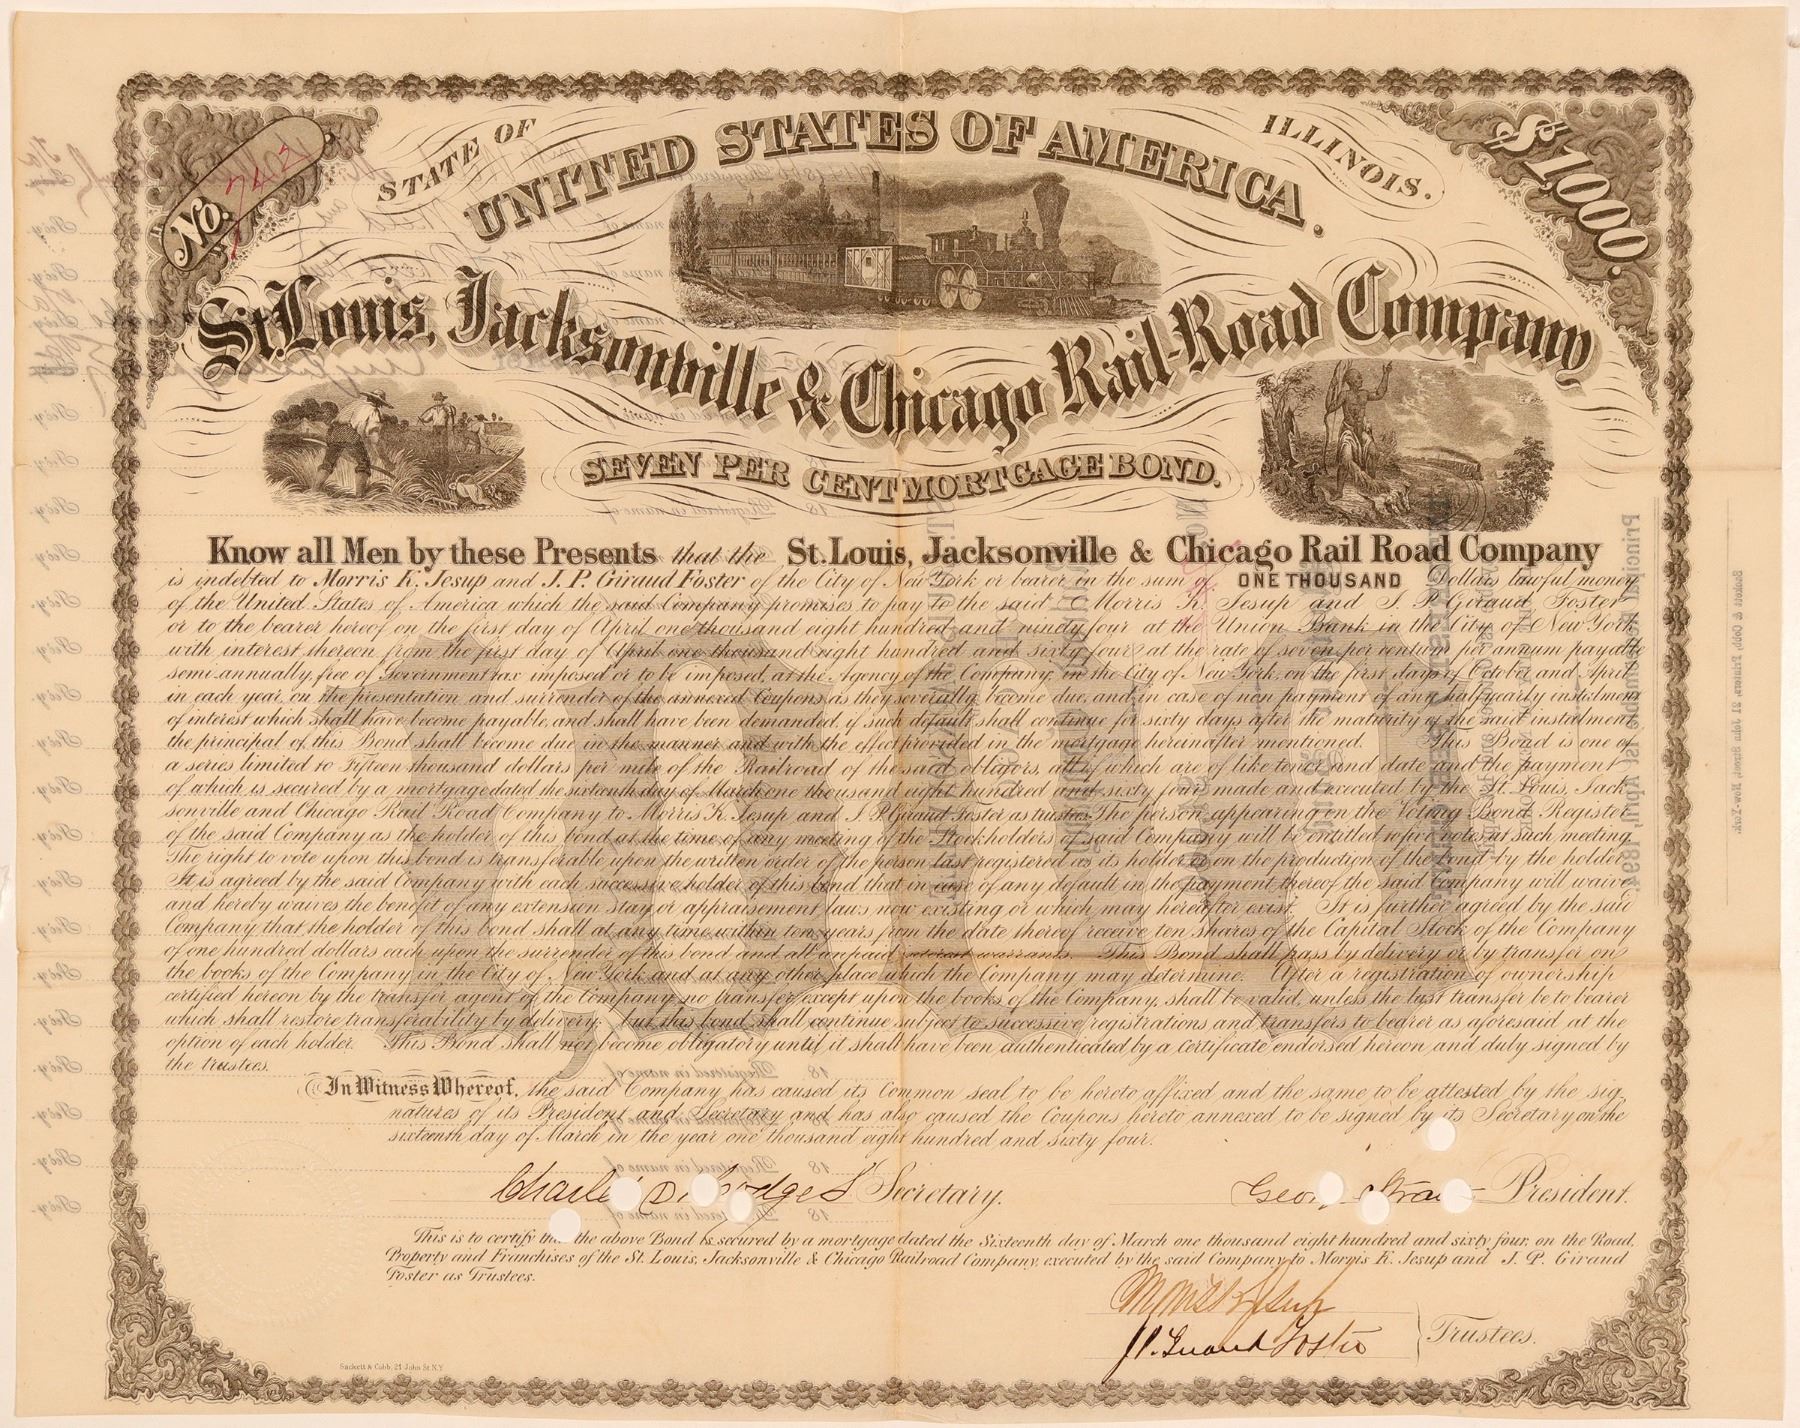 STATE OF
ILLINOIS.
UNITED STATES OF AMERICA.
No. 742
$1,000.
St. Louis, Jacksonville & Chicago Rail-Road Company
SEVEN PER CENT MORTGAGE BOND.
Know all Men by these Presents that the St. Louis, Jacksonville & Chicago Rail Road Company
is indebted to Morris K. Jesup and J. P. Giraud Foster of the City of New York or bearer in the sum of ONE THOUSAND Dollars lawful money
of the United States of America which the said Company promises to pay to the said Morris K. Jesup and J. P. Giraud Foster
or to the bearer hereof on the first day of April one thousand eight hundred and ninety four at the Union Bank in the City of New York
with interest thereon from the first day of April one thousand eight hundred and sixty four at the rate of seven per centum per annum payable
semi-annually, free of Government tax imposed or to be imposed, at the Agency of the Company, in the City of New York, on the first days of October and April
in each year, on the presentation and surrender of the annexed Coupons as they severally become due, and in case of non payment of any half yearly instalment
of interest which shall have become payable, and shall have been demanded, if such default shall continue for sixty days after the maturity of the said instalment
the principal of this Bond shall become due in the manner and with the effect provided in the mortgage hereinafter mentioned. This Bond is one of
a series limited to Fifteen thousand dollars per mile of the Railroad of the said obligors, all of which are of like tenor and date and the payment
of which is secured by a mortgage dated the sixteenth day of March one thousand eight hundred and sixty four made and executed by the St. Louis, Jack-
sonville and Chicago Rail Road Company to Morris K. Jesup and J. P. Giraud Foster as trustees. The person appearing on the Voting Bond Register
of the said Company as the holder of this bond at the time of any meeting of the Stockholders of said Company will be entitled to five votes at such meeting.
The right to vote upon this bond is transferable upon the written order of the person last registered as its holder or on the production of the bond by the holder.
It is agreed by the said Company with each successive holder of this bond that in case of any default in the payment thereof the said company will waive
and hereby waives the benefit of any extension stay or appraisement laws now existing or which may hereafter exist. It is further agreed by the said
Company that the holder of this bond shall at any time within ten years from the date thereof receive ten shares of the Capital Stock of the Company
of one hundred dollars each upon the surrender of this bond and all unpaid interest warrants. This Bond shall pass by delivery or by transfer on
the books of the Company in the City of New York and at any other place which the Company may determine. After a registration of ownership
certified hereon by the transfer agent of the Company, no transfer, except upon the books of the Company, shall be valid, unless the last transfer be to bearer
which shall restore transferability by delivery; but this bond shall continue subject to successive registrations and transfers to bearer as aforesaid at the
option of each holder. This Bond shall not become obligatory until it shall have been authenticated by a Certificate endorsed hereon and duly signed by
the trustees.
In Witness Whereof, the said Company has caused its Common seal to be hereto affixed and the same to be attested by the sig-
natures of its President and Secretary and has also caused the Coupons hereto annexed to be signed by its Secretary on the
sixteenth day of March in the year one thousand eight hundred and sixty four.
Charles D. Hodges Secretary.
George Straut President.
This is to certify that the above Bond is secured by a mortgage dated the Sixteenth day of March one thousand eight hundred and sixty four, on the Road,
Property and Franchises of the St. Louis, Jacksonville & Chicago Railroad Company, executed by the said Company to Morris K. Jesup and J. P. Giraud
Foster as Trustees.
Morris K. Jesup
J. P. Giraud Foster
Trustees.
Sackett & Cobb, 21 John St. N.Y.
Principal Redeemable 1st April, 1894.
Sackett & Cobb, Printers, 21 John Street, New-York.